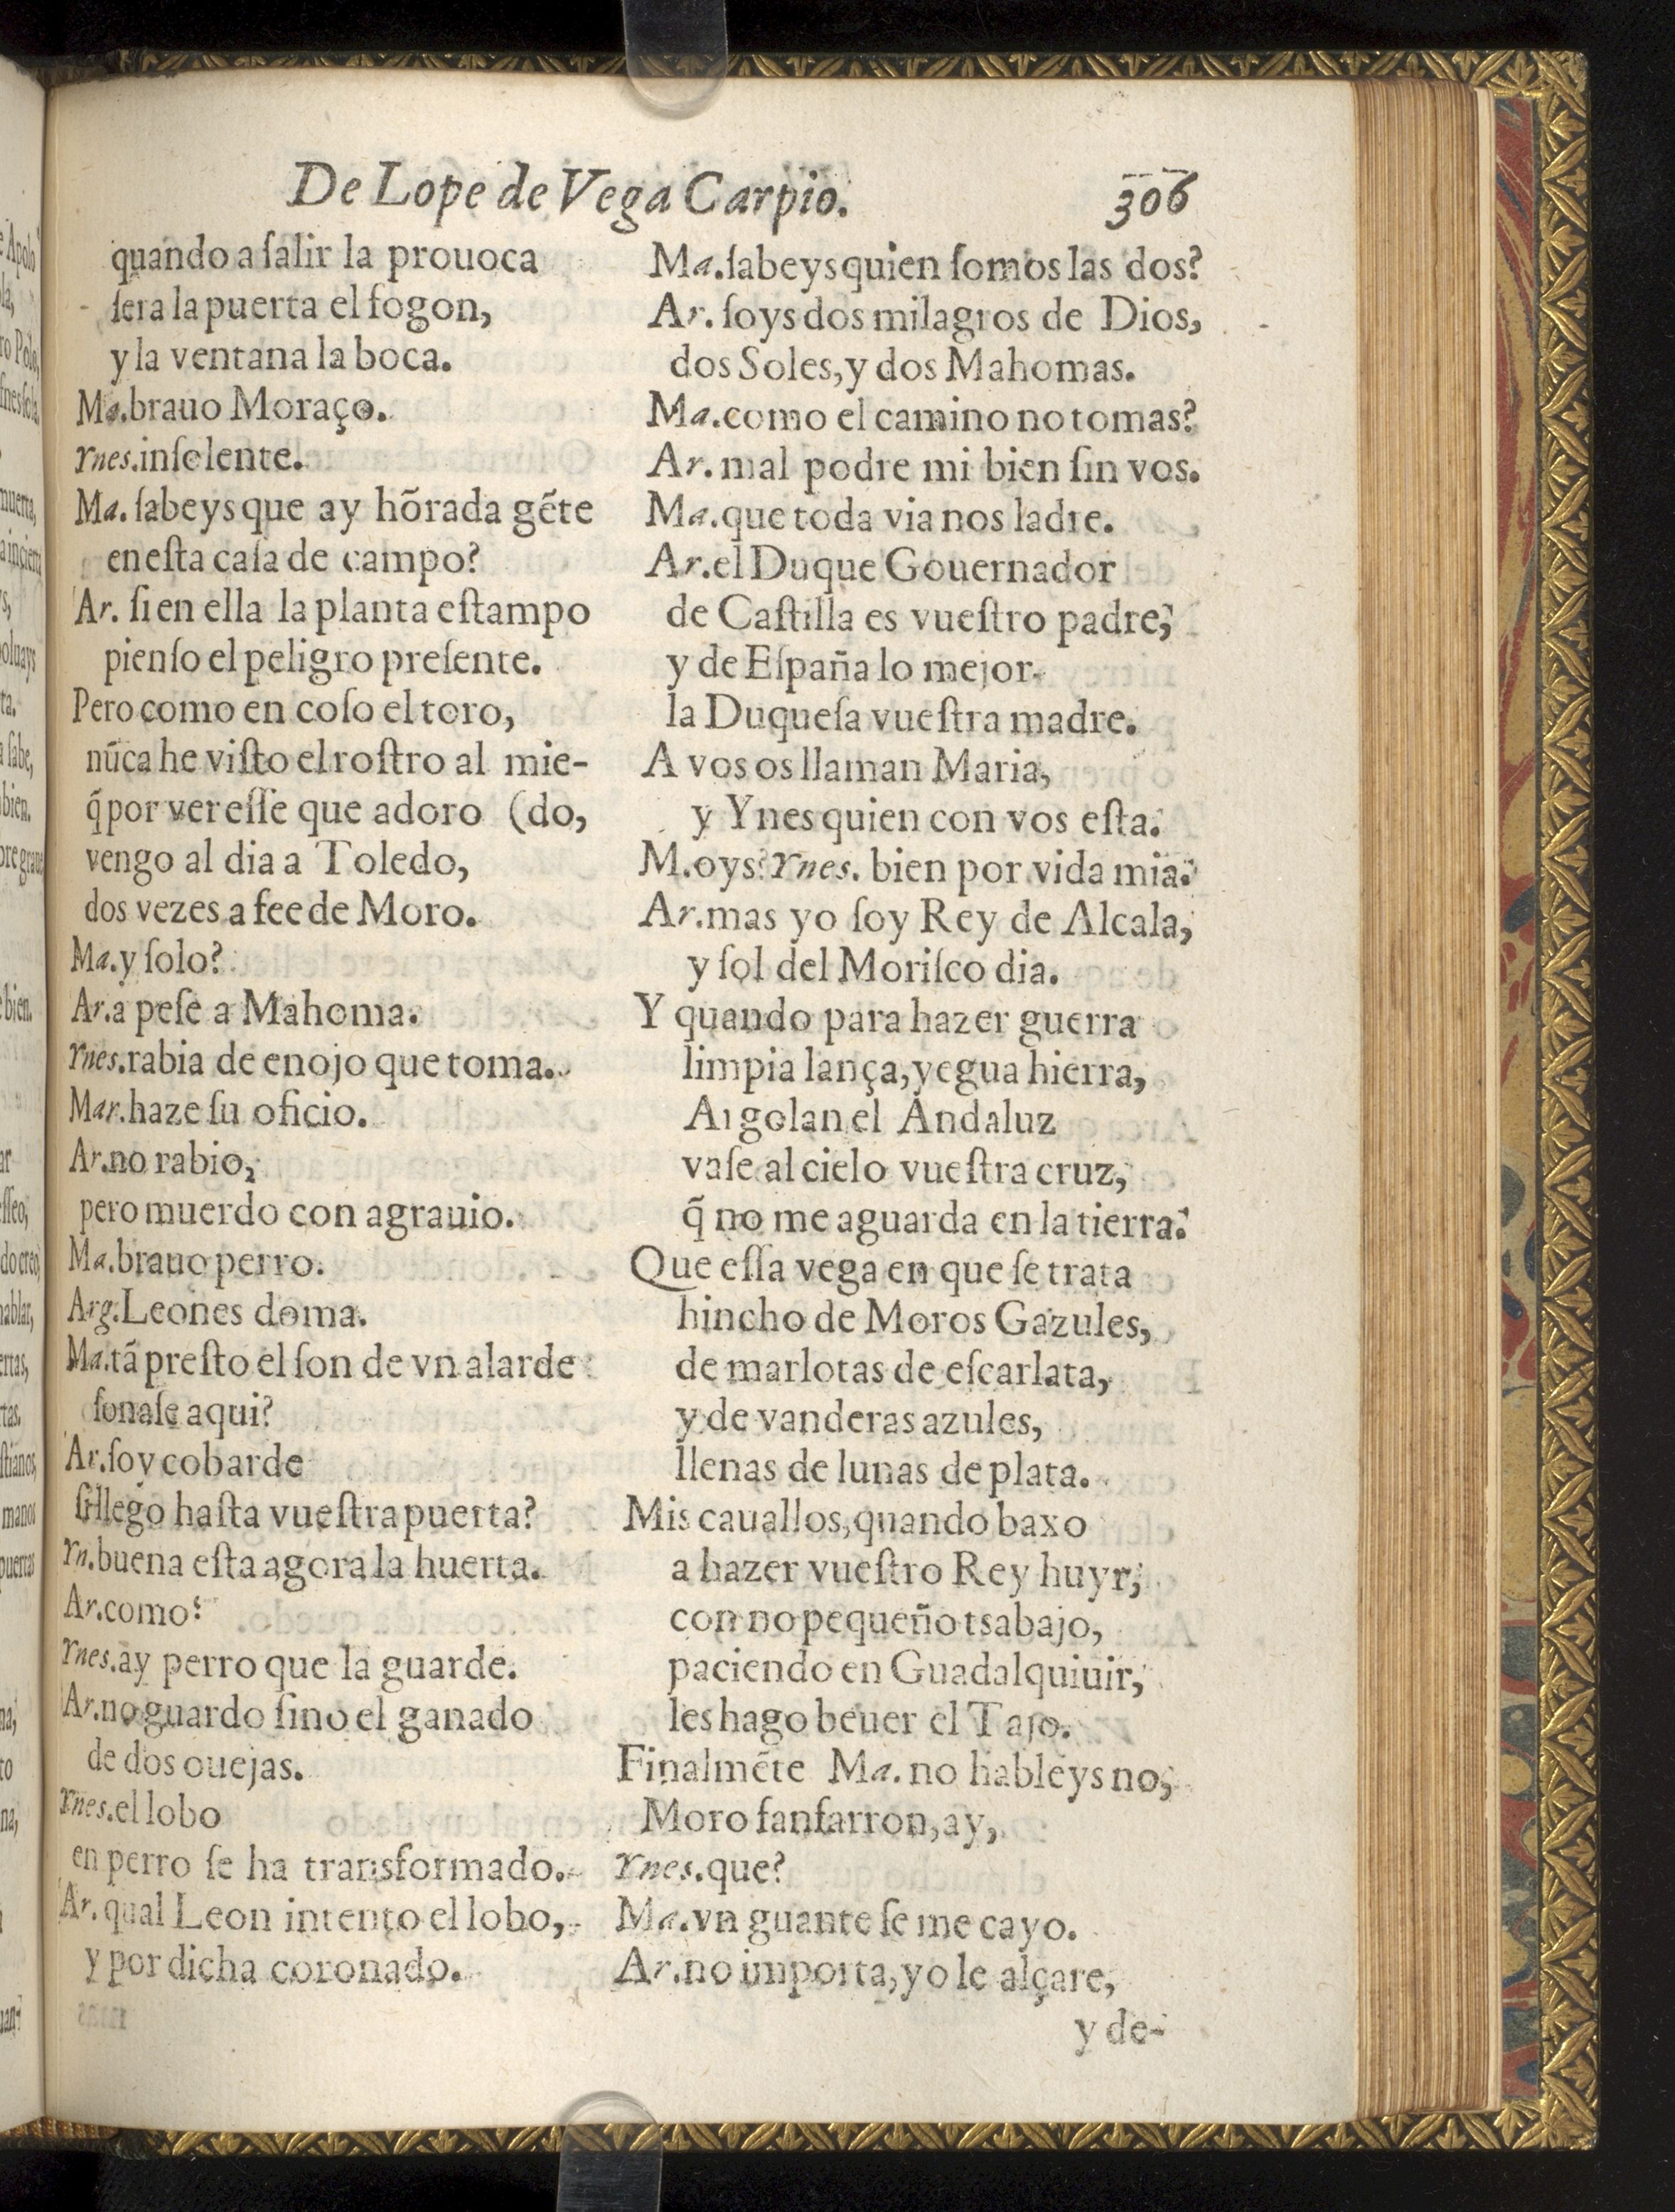 De Lope de Vega Carpio. 306
quando a ſalir la prouoca
ſera la puerta el fogon,
y la ventana la boca.
Ma.brauo Moraço.
Ynes.inſolente.
Ma. ſabeys que ay hõrada gẽte
en eſta caſa de campo?
Ar. ſi en ella la planta eſtampo
pienſo el peligro preſente.
Pero como en coſo el toro,
nũca he viſto el roſtro al mie-
q̃ por ver eſſe que adoro (do,
vengo al dia a Toledo,
dos vezes a fee de Moro.
Ma.y ſolo?
Ar.a peſe a Mahoma.
Ynes.rabia de enojo que toma.
Mar.haze ſu oficio.
Ar.no rabio,
pero muerdo con agrauio.
Ma.brauo perro.
Arg.Leones doma.
Ma.tã preſto el ſon de vn alarde
ſonaſe aqui?
Ar.ſoy cobarde
ſi llego haſta vueſtra puerta?
Yn.buena eſta agora la huerta.
Ar.como?
Ynes.ay perro que la guarde.
Ar.no guardo ſino el ganado
de dos ouejas.
Ynes.el lobo
en perro ſe ha transformado.
Ar.qual Leon intento el lobo,
y por dicha coronado.
Ma.ſabeys quien ſomos las dos?
Ar. ſoys dos milagros de Dios,
dos Soles,y dos Mahomas.
Ma.como el camino no tomas?
Ar.mal podre mi bien ſin vos.
Ma.que toda via nos ladre.
Ar.el Duque Gouernador
de Caſtilla es vueſtro padre,
y de Eſpaña lo mejor
la Duqueſa vueſtra madre.
A vos os llaman Maria,
y Ynes quien con vos eſta.
M.oys?Ynes. bien por vida mia.
Ar.mas yo ſoy Rey de Alcala,
y ſol del Moriſco dia.
Y quando para hazer guerra
limpia lança,yegua hierra,
Argolan el Andaluz
vaſe al cielo vueſtra cruz,
q̃ no me aguarda en la tierra.
Que eſſa vega en que ſe trata
hincho de Moros Gazules,
de marlotas de eſcarlata,
y de vanderas azules,
llenas de lunas de plata.
Mis cauallos,quando baxo
a hazer vueſtro Rey huyr,
con no pequeño tsabajo,
paciendo en Guadalquiuir,
les hago beuer el Tajo.
Finalmẽte Ma. no hableys no,
Moro fanfarron,ay,
Ynes.que?
Ma.vn guante ſe me cayo.
Ar.no importa,yo le alçare,
y de-